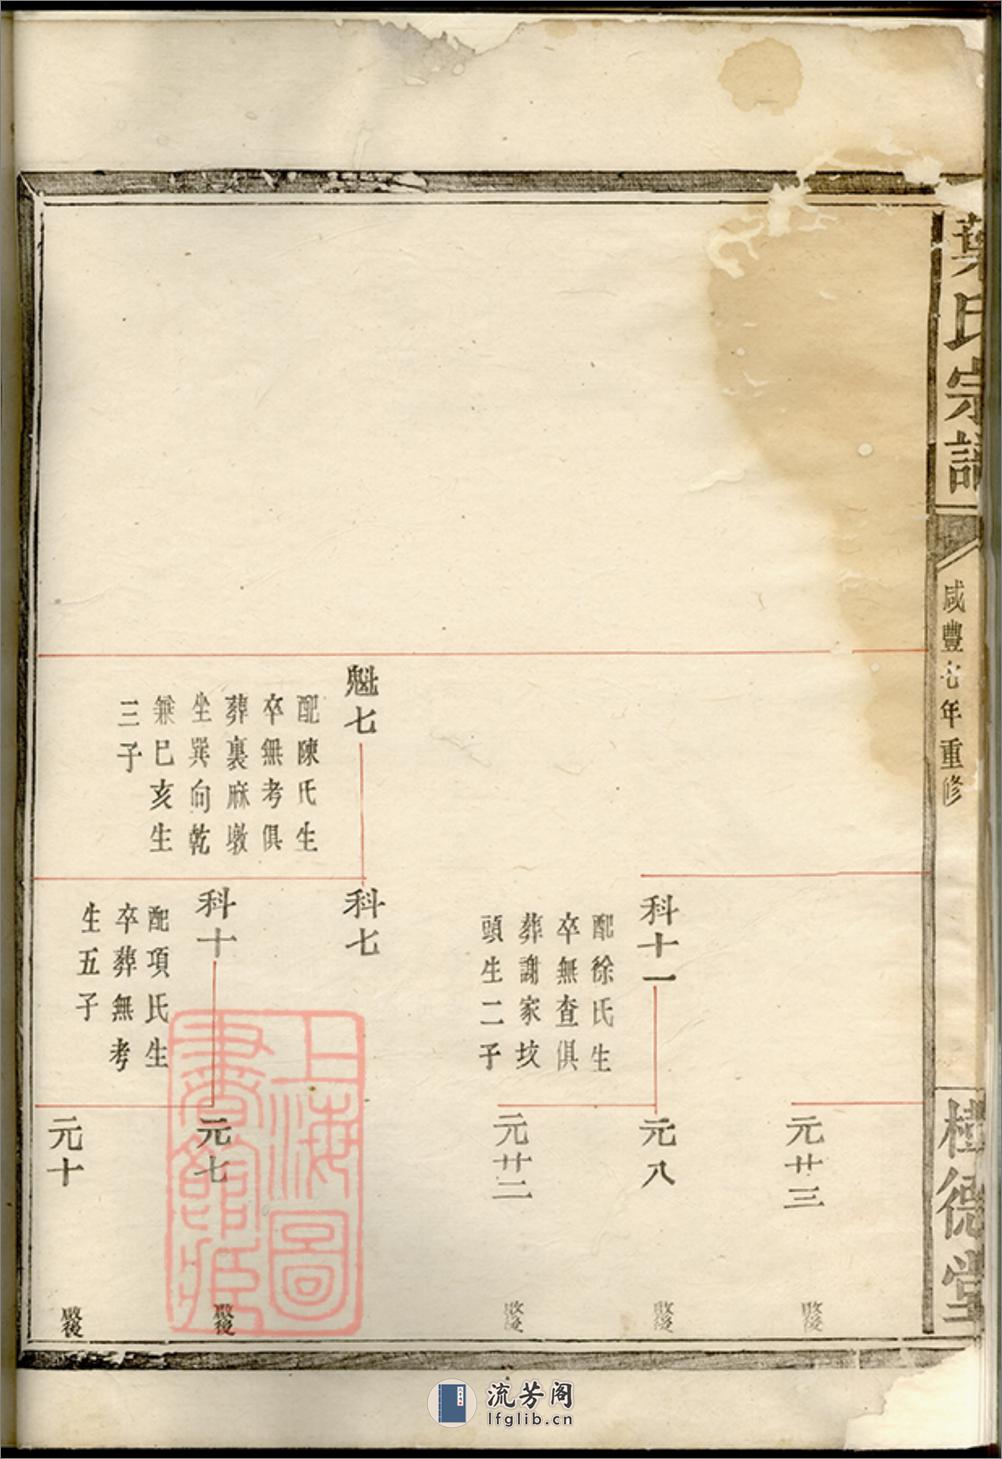 葉氏宗譜
咸豐七年重修
桂德堂
元廿三
科十一
配徐氏生
卒無查俱
葬謝家垓
頭生二子
元八
元廿二
魁七
配陳氏生
卒無考俱
葬裏麻墩
坐巽向乾
兼巳亥生
三子
科七
科十
配項氏生
卒葬無考
生五子
元七
元十
上海圖
書館藏
流芳阁
lfglib.cn